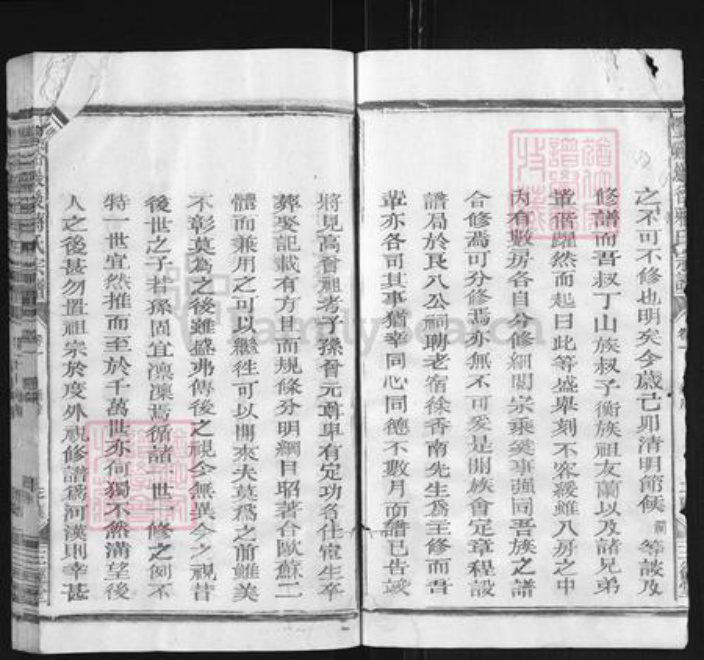 之不可不修也明矣今歲己卯清明節候蘭等談及
修譜而吾叔丁山族叔子衡族祖友蘭以及諸兄弟
輩僉躍然而起曰此等盛舉刻不容緩雖八房之中
內有數房各自分修細閱宗乘義事強同吾族之譜
合修焉可分修焉亦無不可爰是開族會定章程設
譜局於良八公祠聘老宿徐香南先生為主修而吾
輩亦各司其事猶幸同心同德不數月而譜已告竣
將見高曾祖考子孫曾元尊卑有定功名仕宦生卒
葬娶記載有方且而規條分明綱目昭著合歐蘇二
體而兼用之可以繼往可以開來夫莫為之前雖美
不彰莫為之後雖盛弗傳後之視今無異今之視昔
後世之子若孫固宜凜凜焉循諸一世一修之例不
特一世宜然推而至於千萬世亦何獨不然滿望後
人之後甚勿置祖宗於度外視修譜為河漢則幸甚
氏宗譜
卷一
FamilySearch